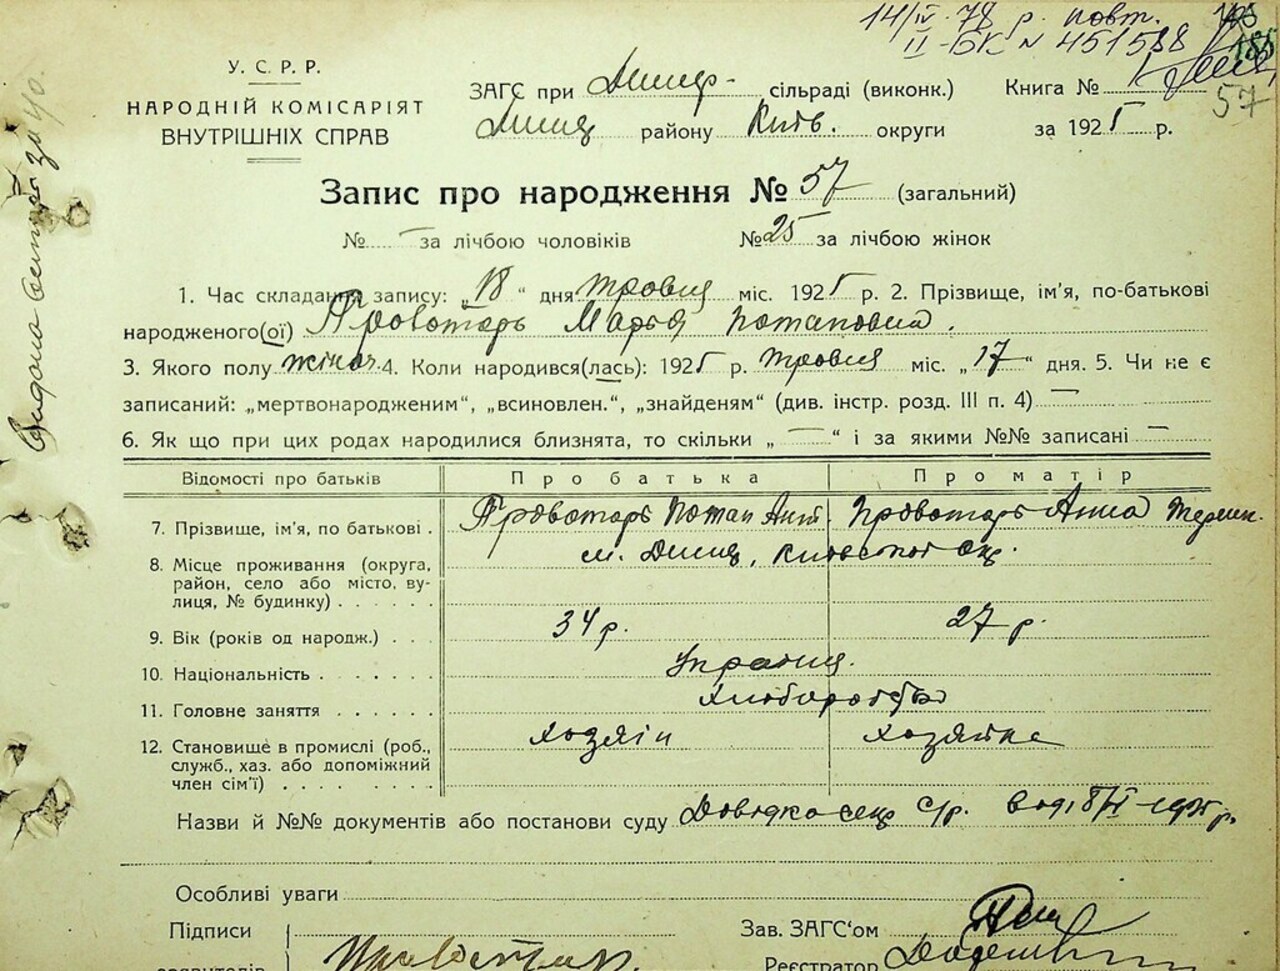 14/IV-78 р. повт.
II-БК № 451538
185
57
У. С. Р. Р.
НАРОДНІЙ КОМІСАРІЯТ
ВНУТРІШНІХ СПРАВ
ЗАГС при Димер- сільраді (виконк.) Книга №
Димер району Київ. округи за 1925 р.
Запис про народження № 57 (загальний)
№ — за лічбою чоловіків № 25 за лічбою жінок
1. Час складання запису: „18“ дня травня міс. 1925 р. 2. Прізвище, ім'я, по-батькові
народженого(ої) Провотарь Марья Потаповна.
3. Якого полу жіноч. 4. Коли народився(лась): 1925 р. травня міс. „17“ дня. 5. Чи не є
записаний: „мертвонародженим“, „всиновлен.“, „знайденям“ (див. інстр. розд. III п. 4) —
6. Як що при цих родах народилися близнята, то скільки „—“ і за якими №№ записані —
Відомості про батьків Про батька Про матір
7. Прізвище, ім'я, по батькові . Провотарь Потап Ант. Провотарь Анна
8. Місце проживання (округа, м. Димер, Київської окр.
район, село або місто, ву-
лиця, № будинку) . . . . . .
9. Вік (років од народж.) . . . 34 р. 27 р.
10. Національність . . . . . . . Українц.
11. Головне заняття . . . . . . Хліборобство
12. Становищé в промислі (роб., Хозяін Хозяйка
служб., хаз. або допоміжний
член сім'ї) . . . . . . . .
Назви й №№ документів або постанови суду Довідка с/р.
Особливі уваги
Підписи Зав. ЗАГС'ом
заявителів Провотар. Реєстратор